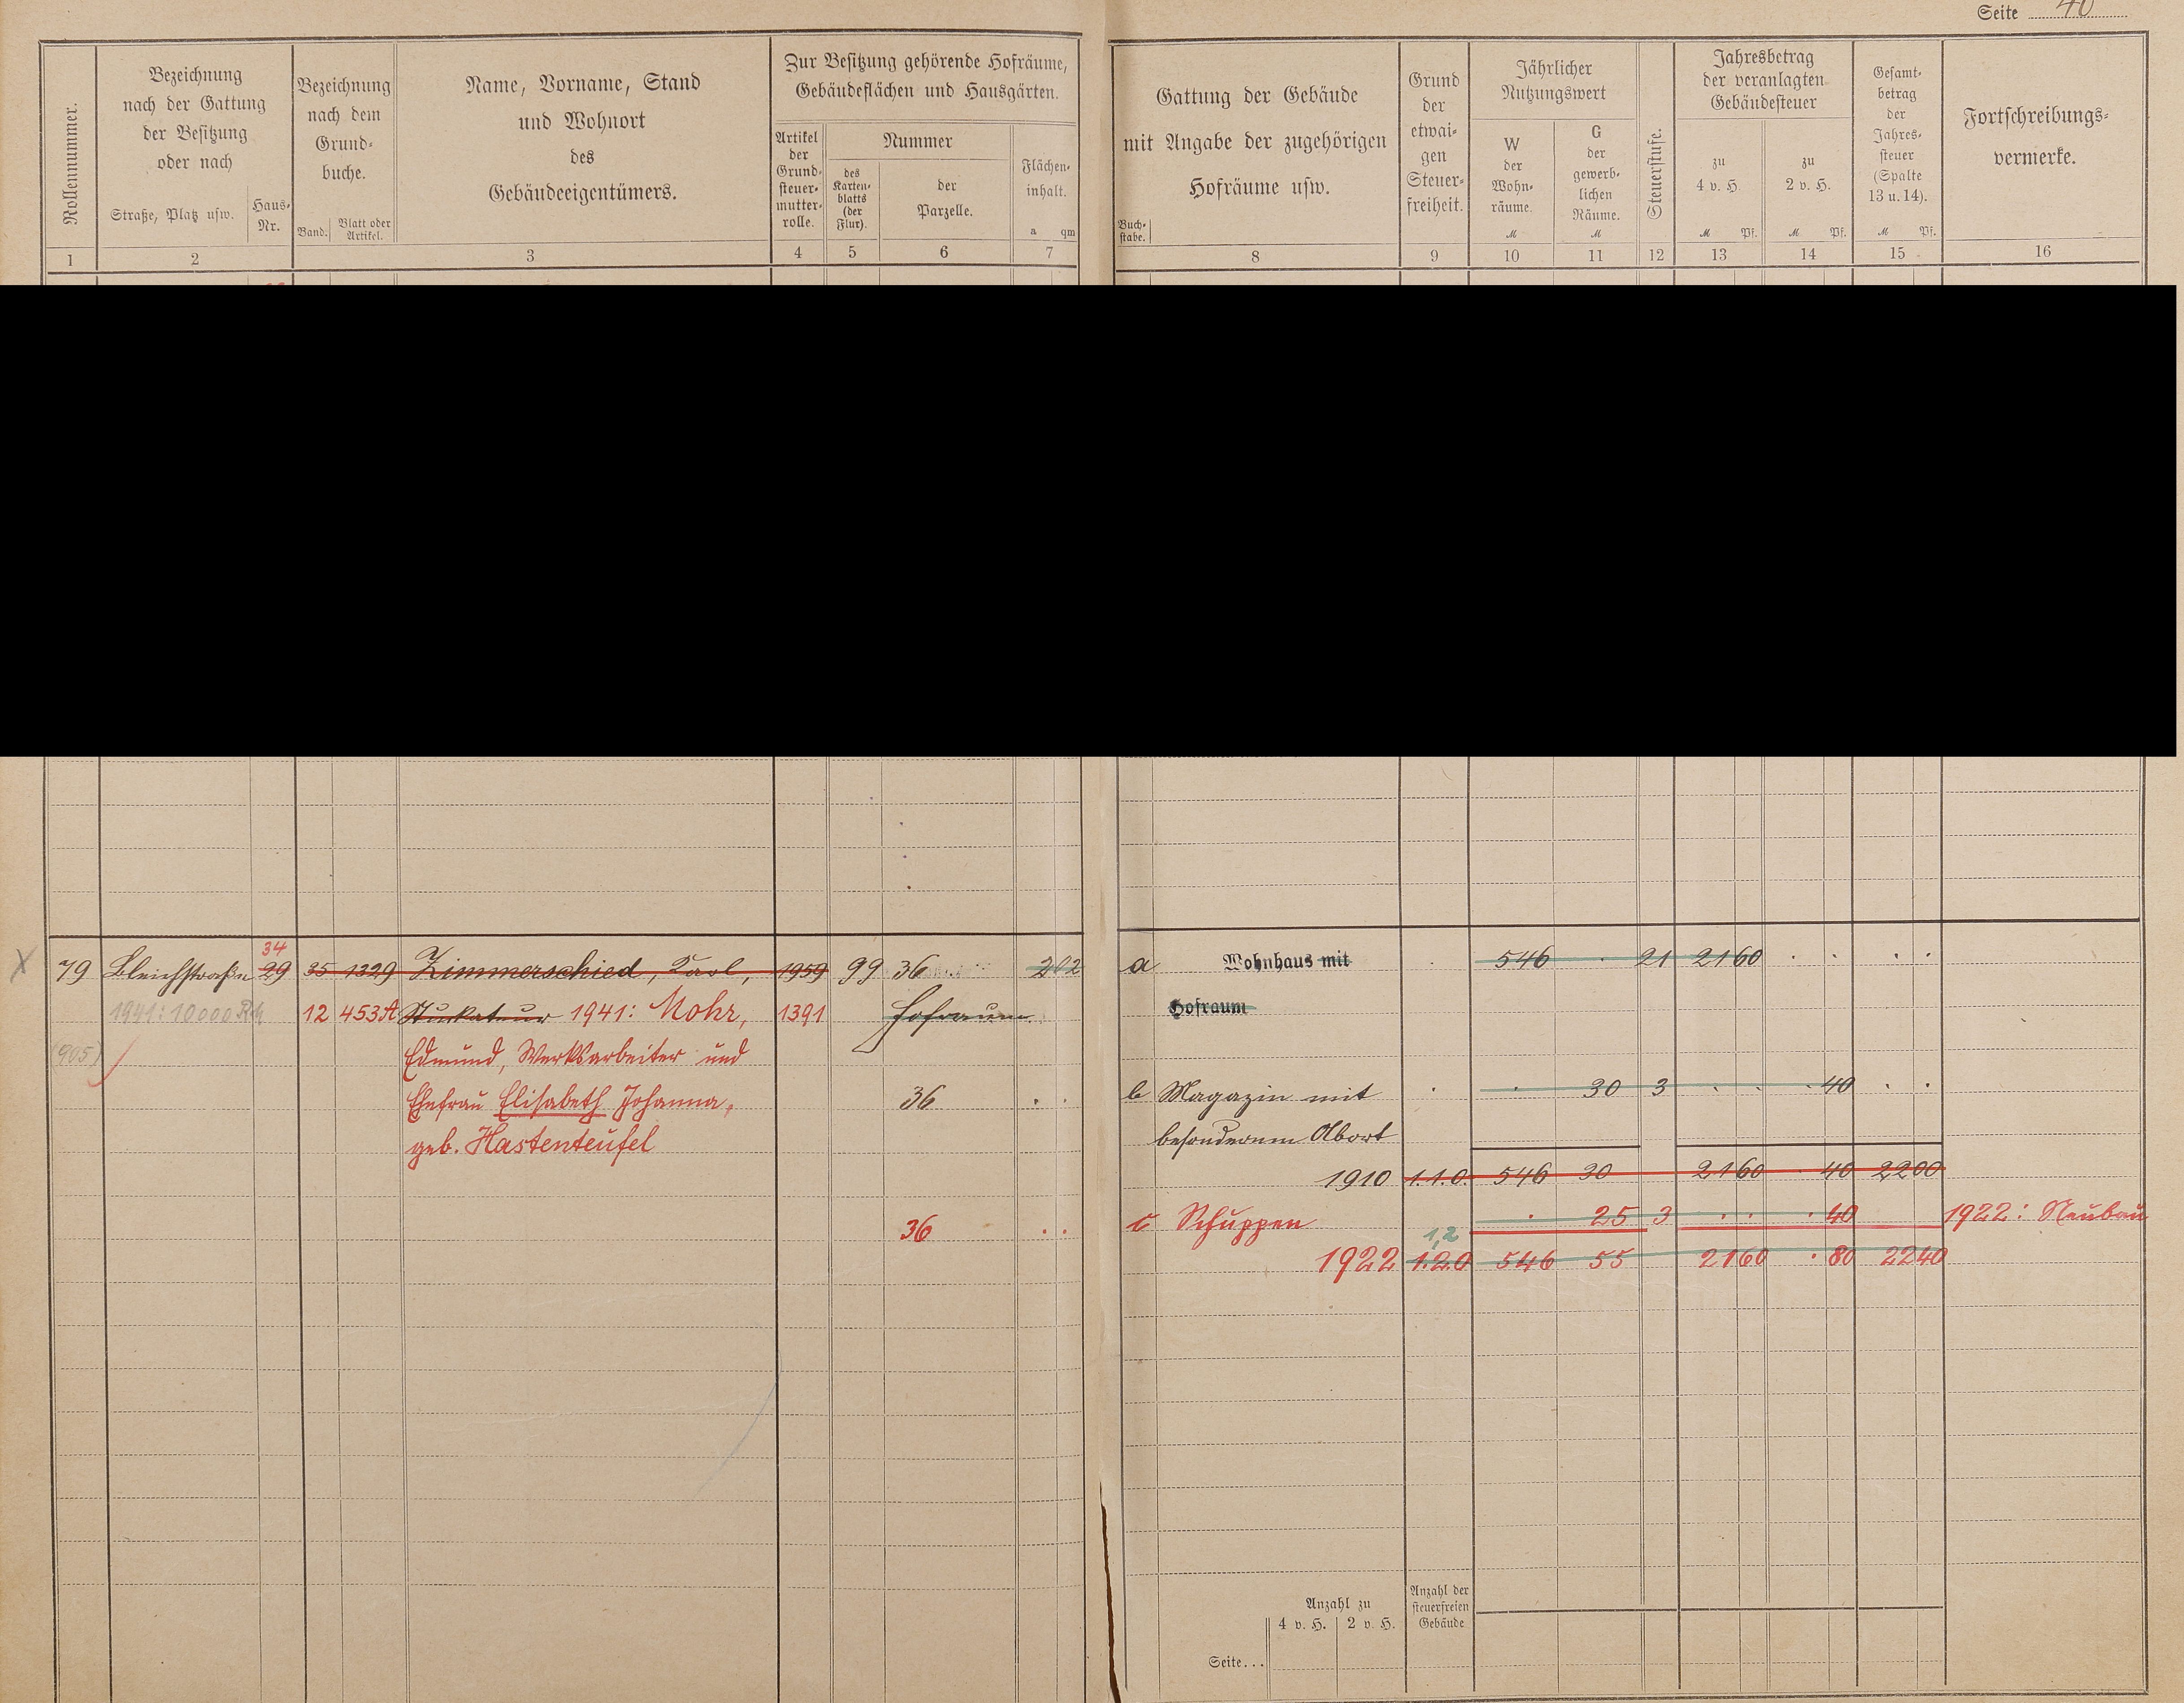 Seite 40
Rollennummer.
Bezeichnung
nach der Gattung
der Besitzung
oder nach
Straße, Platz usw.
Haus-
Nr.
Bezeichnung
nach dem
Grund-
buche.
Band.
Blatt oder
Artikel.
Name, Vorname, Stand
und Wohnort
des
Gebäudeeigentümers.
Zur Besitzung gehörende Hofräume,
Gebäudeflächen und Hausgärten.
Artikel
der
Grund-
steuer-
mutter-
rolle.
Nummer
des
Karten-
blatts
(der
Flur).
der
Parzelle.
Flächen-
inhalt.
a qm
1 2 3 4 5 6 7
Gattung der Gebäude
mit Angabe der zugehörigen
Hofräume usw.
Buch-
stabe.
Grund
der
etwai-
gen
Steuer-
freiheit.
Jährlicher
Nutzungswert
W
der
Wohn-
räume.
M
G
der
gewerb-
lichen
Räume.
M
Steuerstufe.
Jahresbetrag
der veranlagten
Gebäudesteuer
zu
4 v. H.
M Pf.
zu
2 v. H.
M Pf.
Gesamt-
betrag
der
Jahres-
steuer
(Spalte
13 u. 14).
M Pf.
Fortschreibungs-
vermerke.
8 9 10 11 12 13 14 15 16
34
79 Bleichstraße 29 35 1329 Zimmerschied, Karl, 1959 99 36 2 02
1941: 10000 RM 12 453A Stukateur 1941: Mohr, 1391 Hofraum
(905) Edmund, Werksarbeiter und
Ehefrau Elisabeth Johanna, 36
geb. Hastenteufel
36
a Wohnhaus mit 546 21 21 60
Hofraum
b Magazin mit 30 3 40
besonderem Abort
1910 1.1.0. 546 30 21 60 40 22 00
c Schuppen 25 3 40 1922: Neubau
1,2
1922 1.2.0 546 55 21 60 80 22 40
Anzahl zu
4 v. H. 2 v. H.
Anzahl der
steuerfreien
Gebäude
Seite...